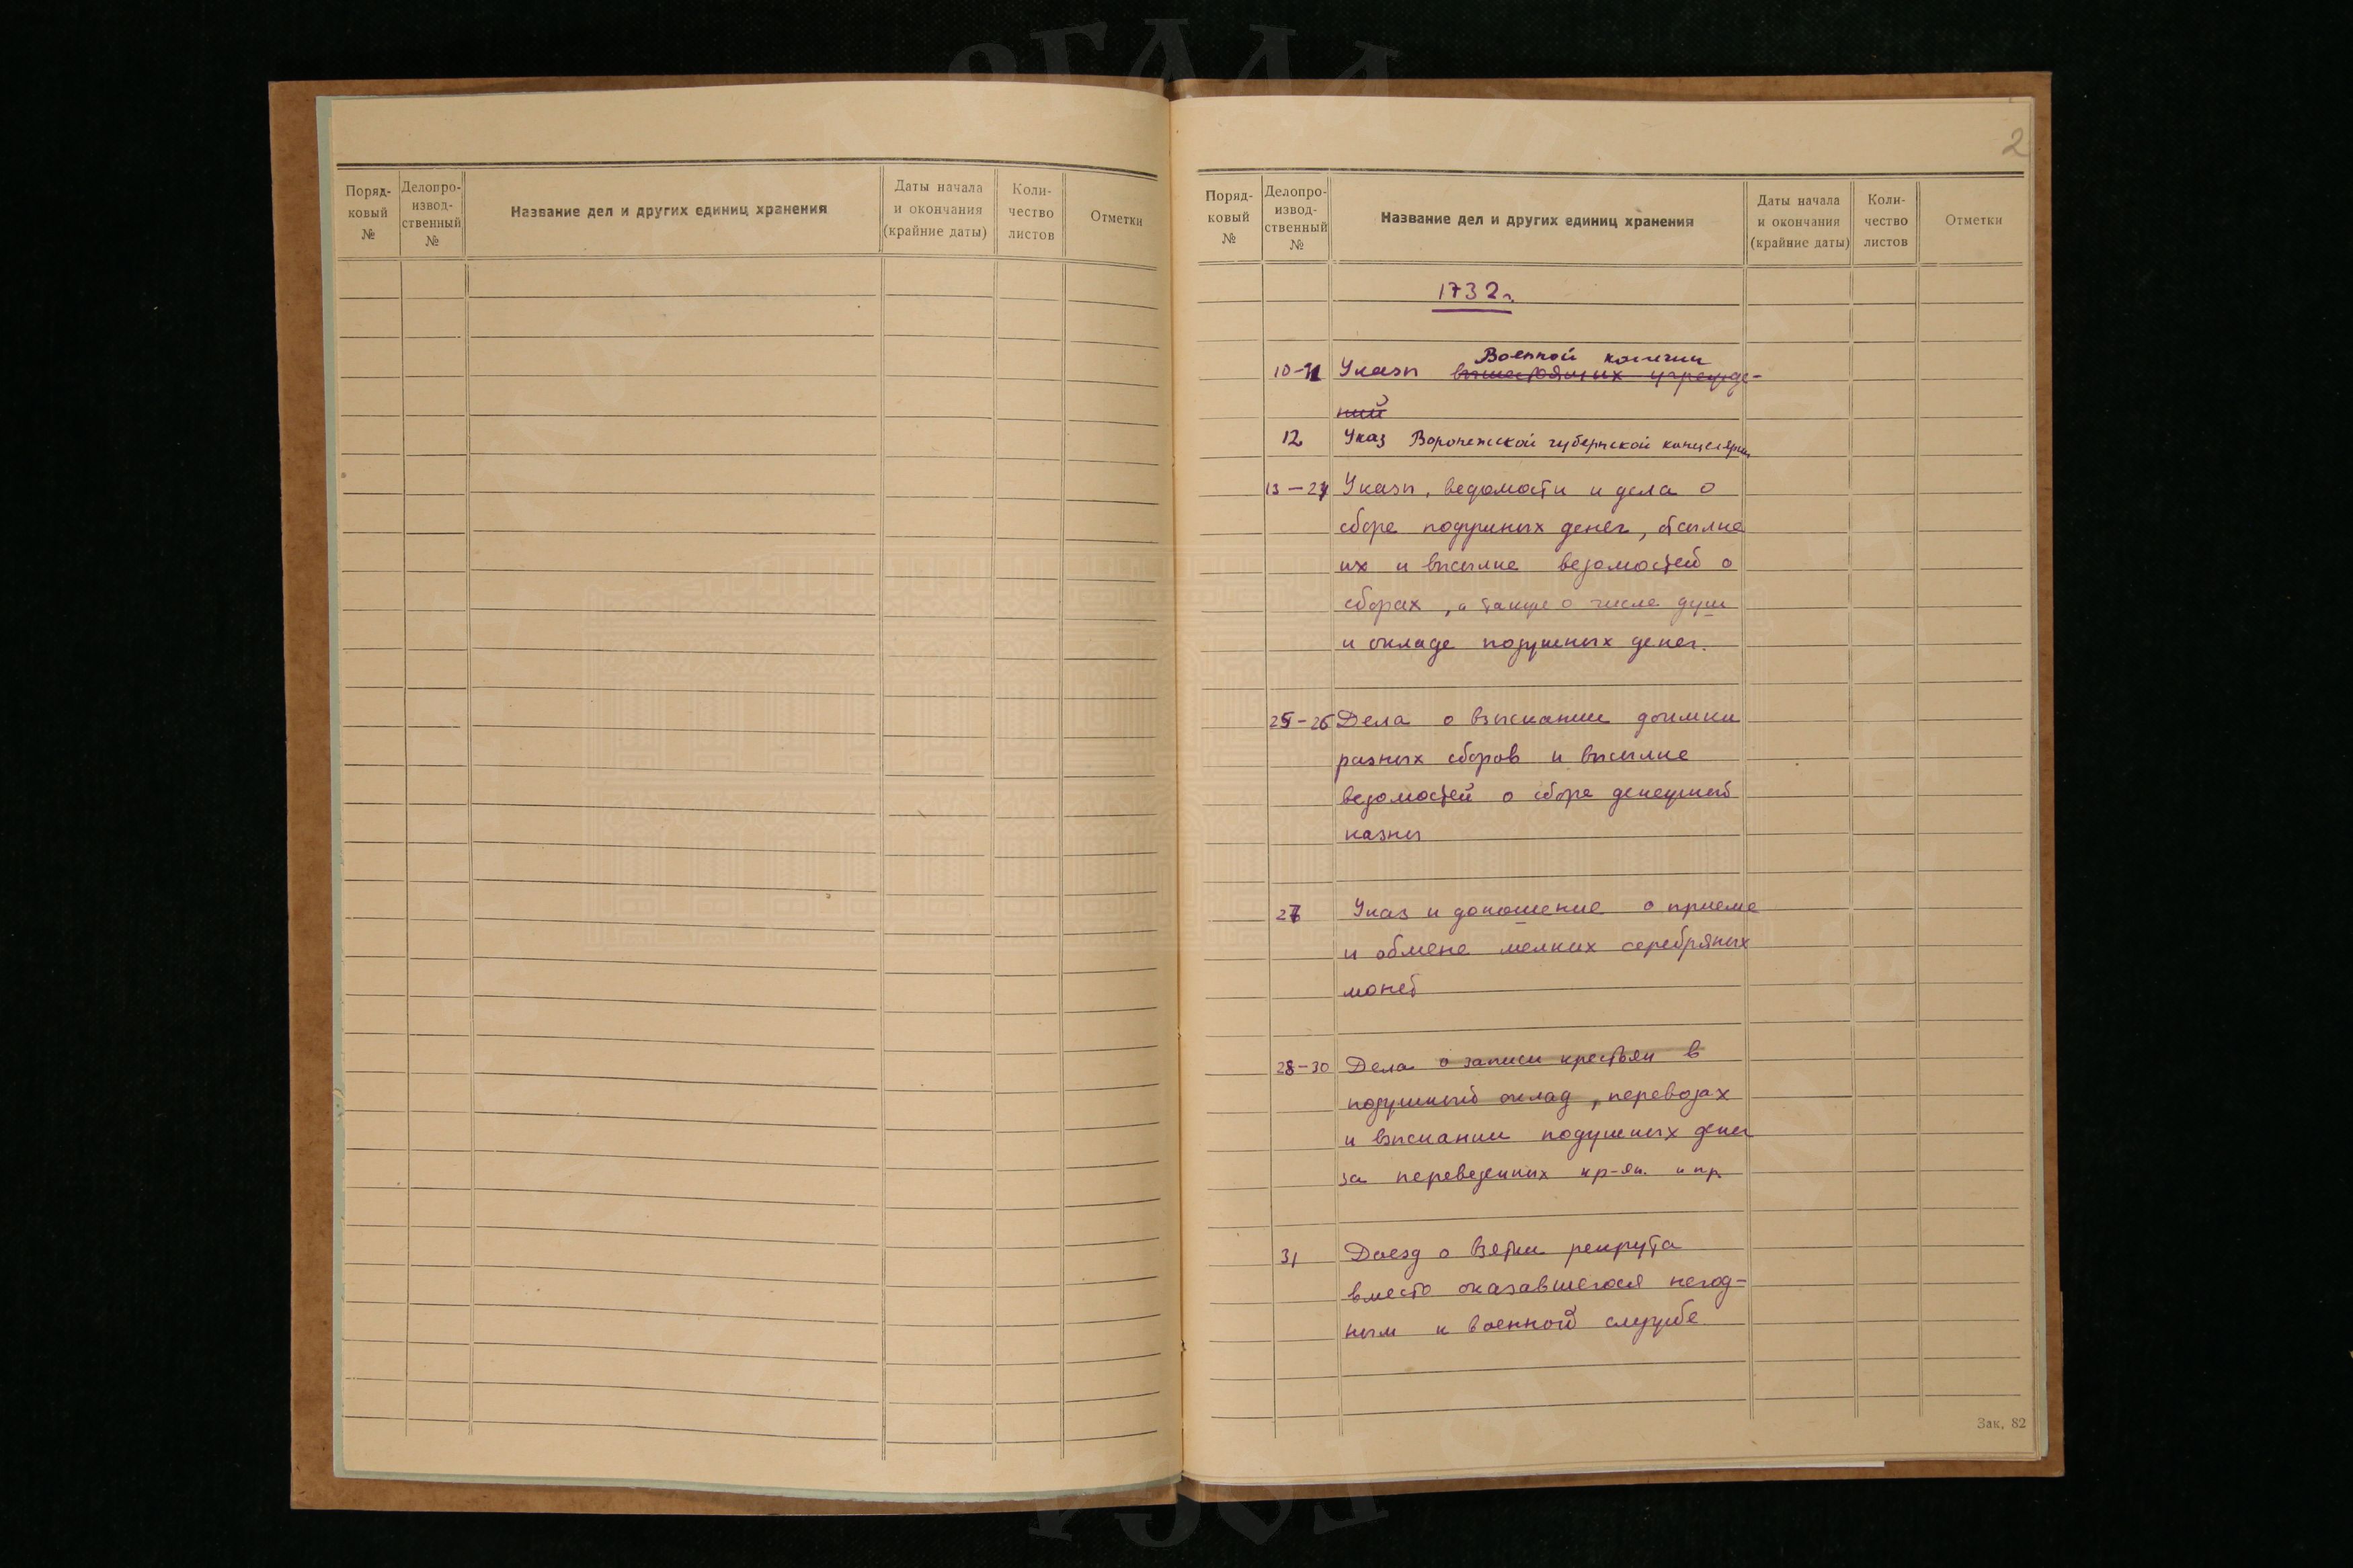 Поряд-
ковый
№
Делопро-
извод-
ственный
№
Название дел и других единиц хранения
Даты начала
и окончания
(крайние даты)
Коли-
чество
листов
Отметки
2
Поряд-
ковый
№
Делопро-
извод-
ственный
№
Название дел и других единиц хранения
Даты начала
и окончания
(крайние даты)
Коли-
чество
листов
Отметки
1732 г.
Военной коллегии
10-11 Указы вышестоящих учрежде-
ний
12 Указ Воронежской губернской канцелярии
13-24 Указы, ведомости и дела о
сборе подушных денег, отсылке
их и высылке ведомостей о
сборах, а также о числе душ
и окладе подушных денег.
25-26 Дела о взыскании доимки
разных сборов и высылке
ведомостей о сборе денежной
казны
27 Указ и доношение о приеме
и обмене мелких серебряных
монет
28-30 Дела о записи крестьян в
подушный оклад, переводах
и взыскании подушных денег
за переведенных кр-ян. и пр.
31 Доезд о взятии рекрута
вместо оказавшегося негод-
ным к военной службе
Зак. 82